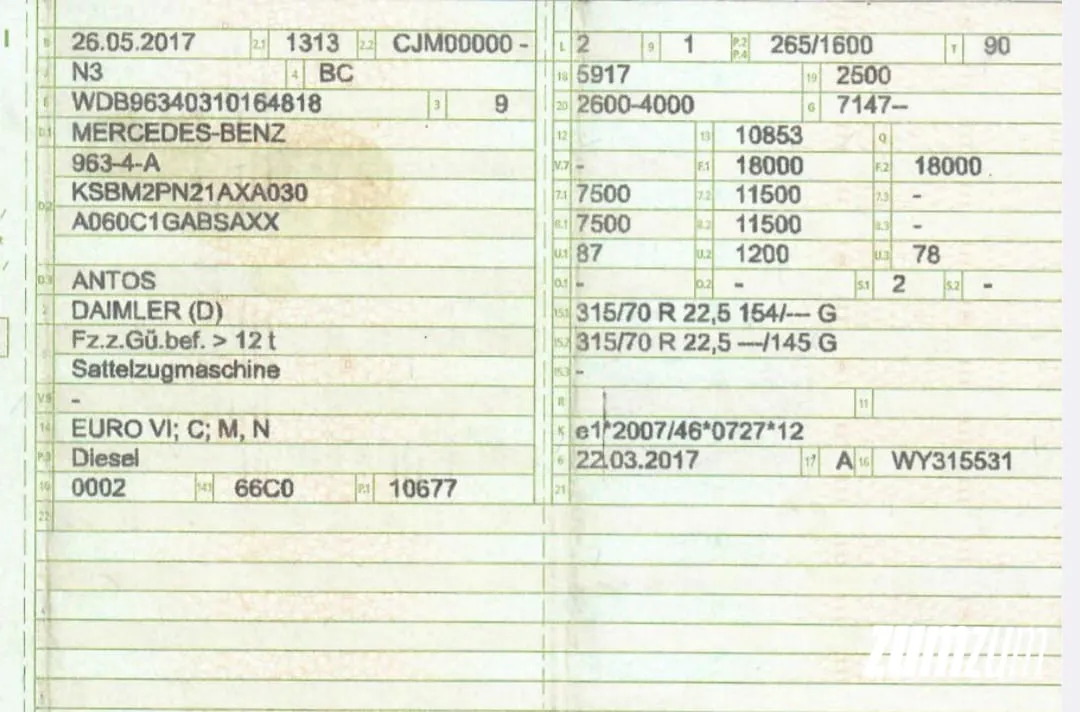 B 26.05.2017 2.1 1313 2.2 CJM00000 -
J N3 4 BC
E WDB96340310164818 3 9
D.1 MERCEDES-BENZ
963-4-A
D.2 KSBM2PN21AXA030
A060C1GABSAXX
D.3 ANTOS
2 DAIMLER (D)
5 Fz.z.Gü.bef. > 12 t
Sattelzugmaschine
V.9 -
14 EURO VI; C; M, N
P.3 Diesel
10 0002 14.1 66C0 P.1 10677
22
L 2 9 1 P.2 P.4 265/1600 T 90
18 5917 19 2500
20 2600-4000 G 7147--
12 13 10853 Q
V.7 - F.1 18000 F.2 18000
7.1 7500 7.2 11500 7.3 -
8.1 7500 8.2 11500 8.3 -
U.1 87 U.2 1200 U.3 78
O.1 - O.2 - S.1 2 S.2 -
15.1 315/70 R 22,5 154/--- G
15.2 315/70 R 22,5 ---/145 G
15.3 -
R 11
K e1*2007/46*0727*12
6 22.03.2017 17 A 16 WY315531
21
zumzum